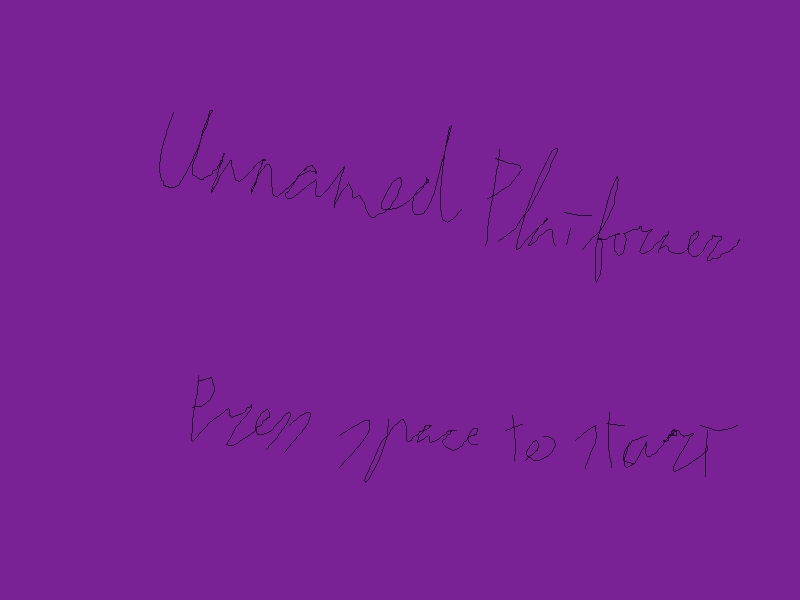 Unnamed Platformer
Press space to start